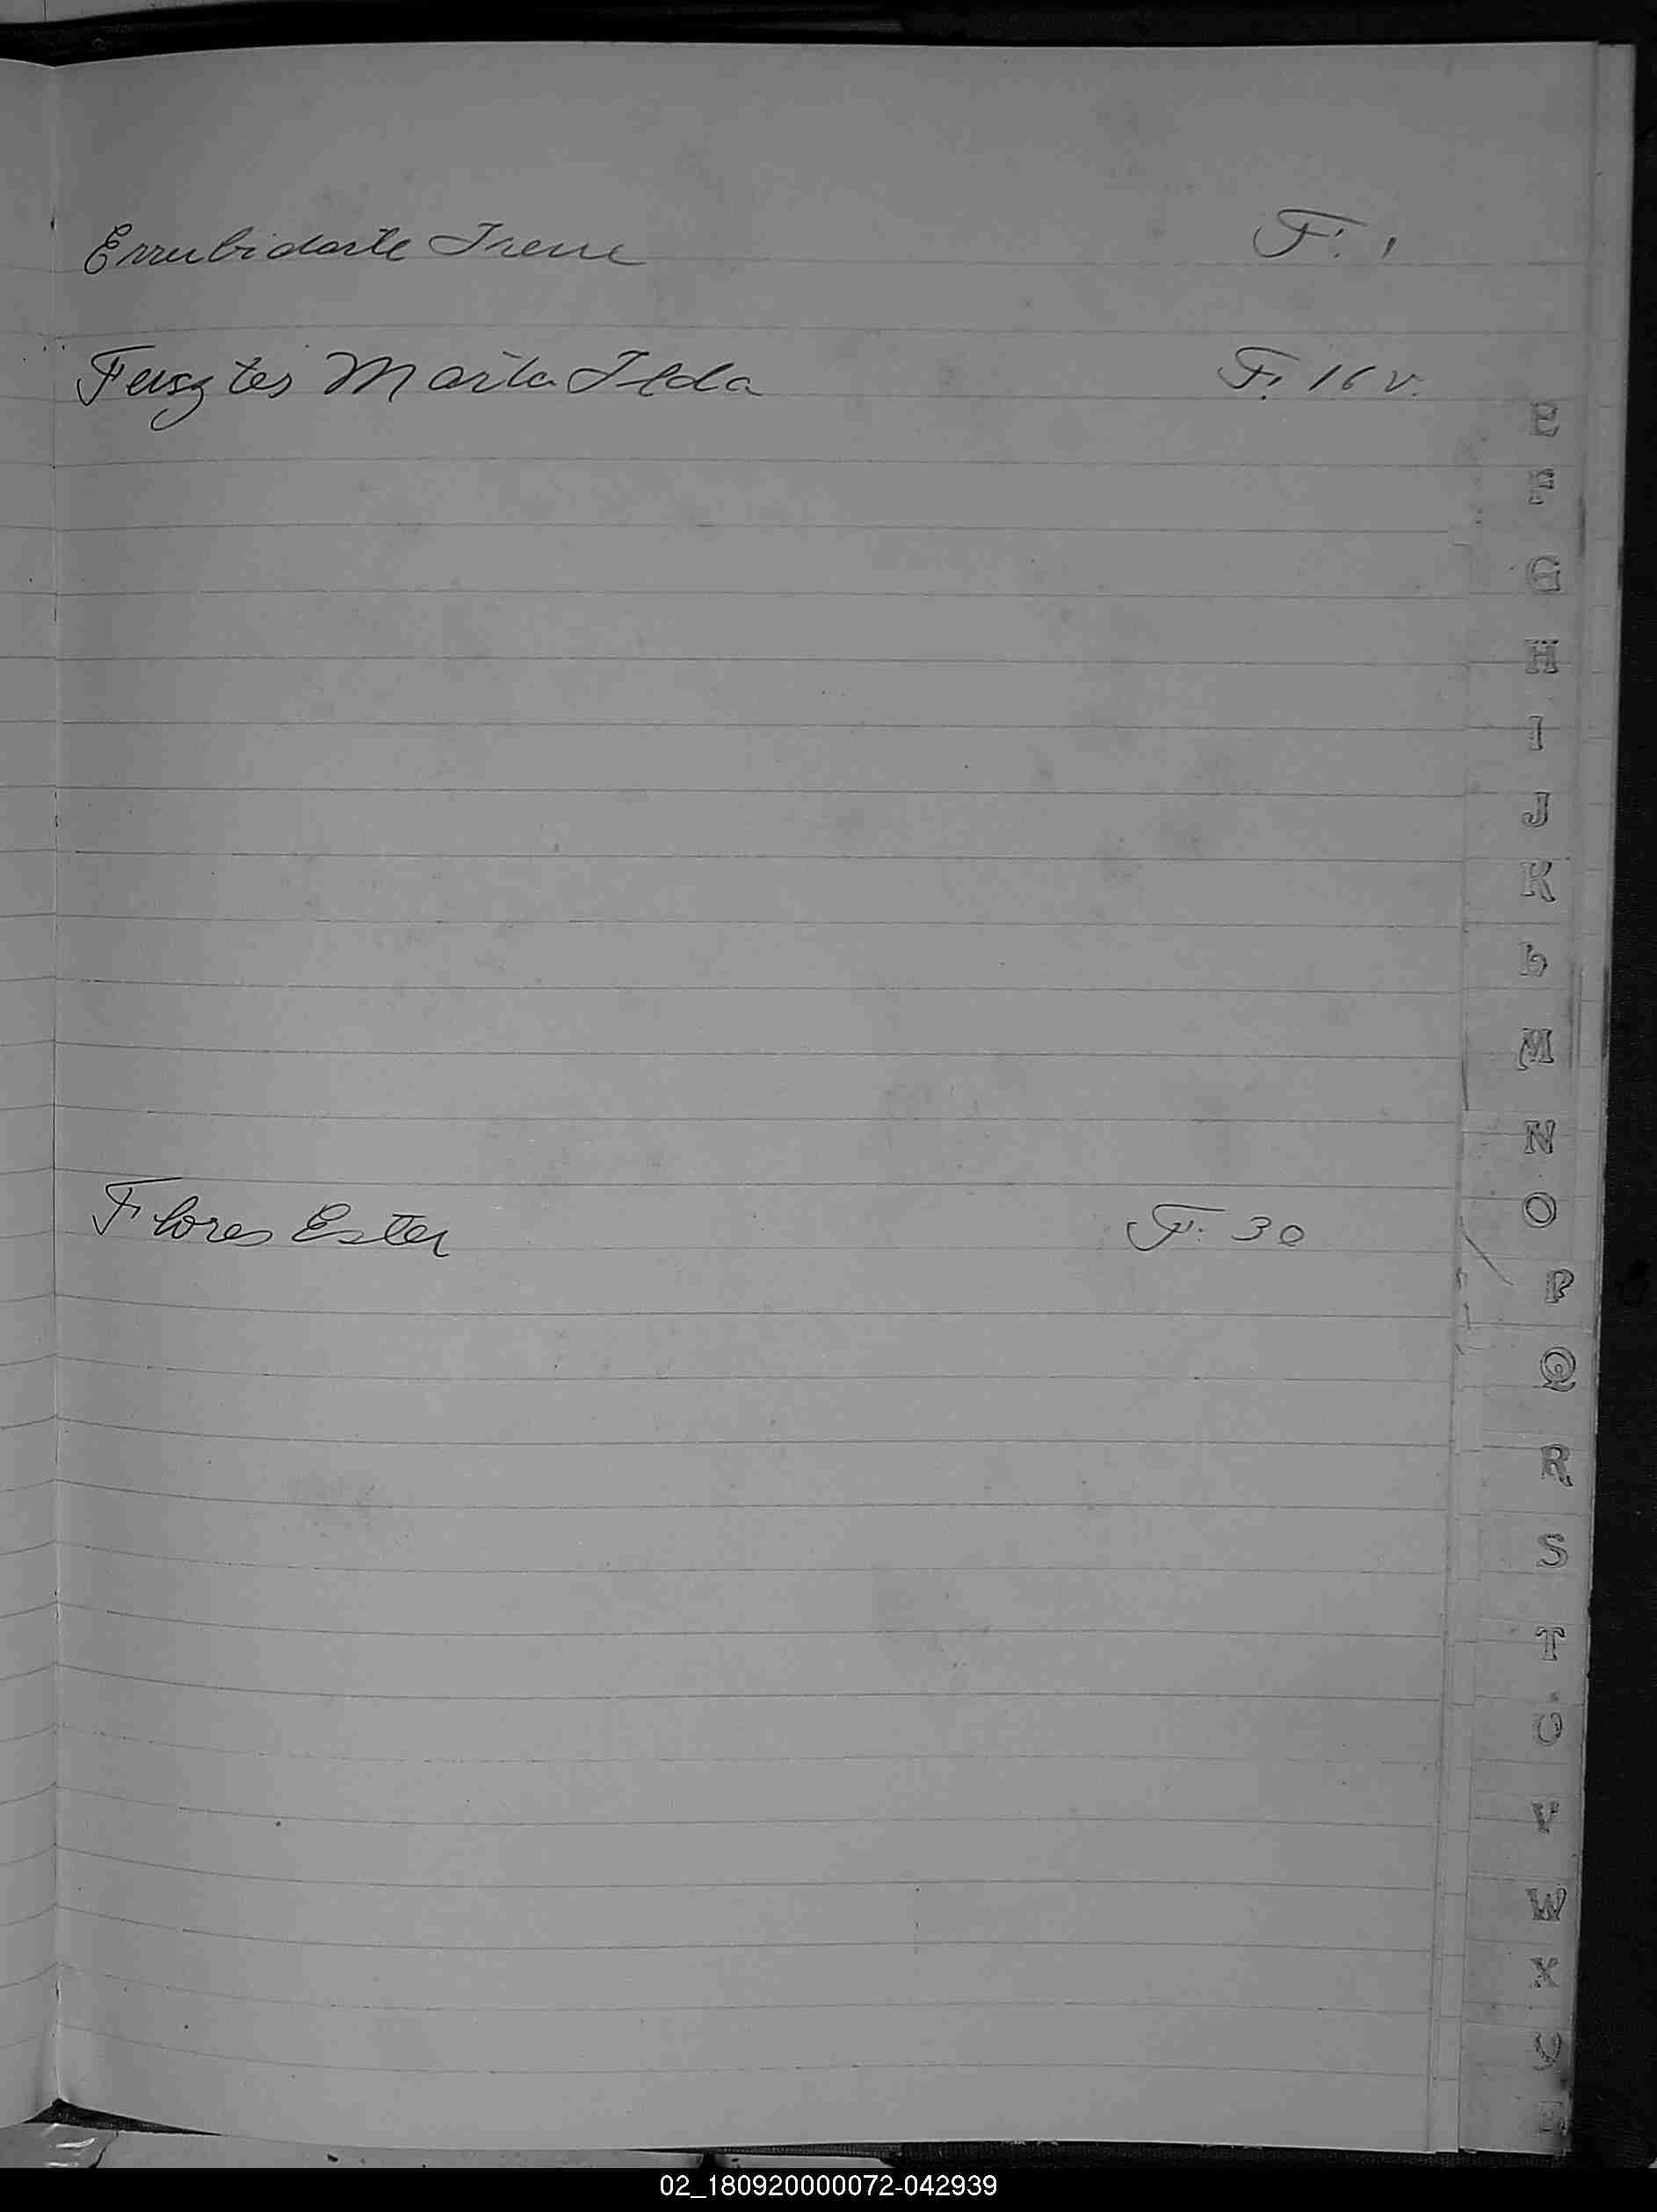 Errubidarte Irene F. 1
Fusztes Marta Ilda F. 16 v.
E
F
G
H
I
J
K
L
M
N
O
P
Q
R
S
T
U
V
W
X
Flores Ester F. 30
02_180920000072-042939